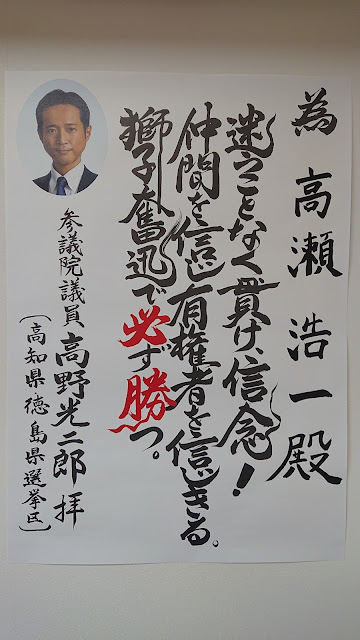 為 高瀬浩一殿
迷うことなく貫け、信念！
仲間を信じ有権者を信じきる。
獅子奮迅で必ず勝つ。
参議院議員 高野光二郎 拝
〔高知県徳島県選挙区〕